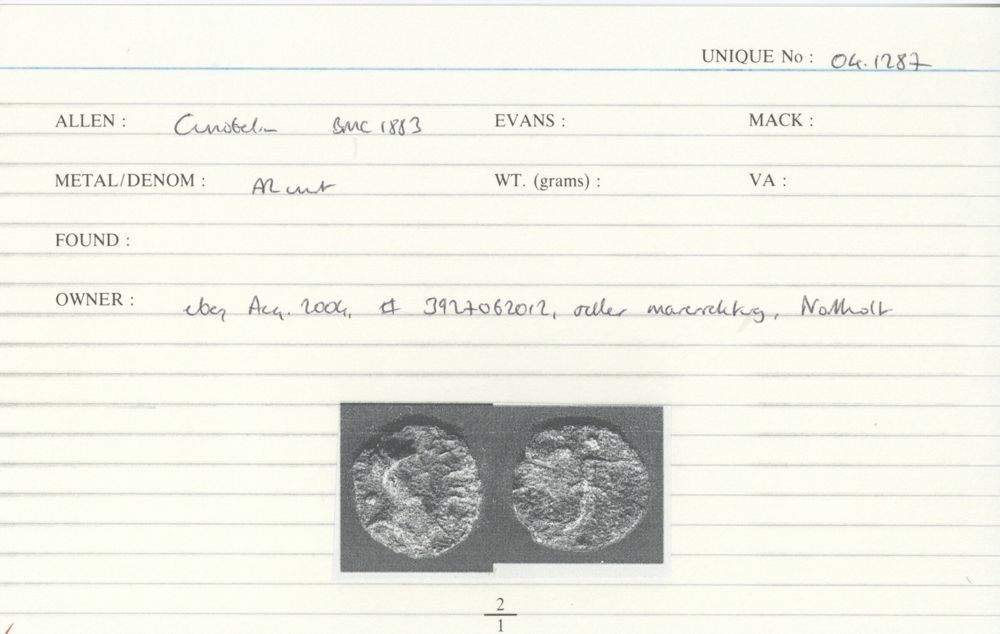 UNIQUE No : 04.1287
ALLEN : Cunobelin BMC 1883 EVANS : MACK :
METAL/DENOM : AR unit WT. (grams) : VA :
FOUND :
OWNER : ebay Aug. 2004, # 3927062012, seller Northolt
2
1